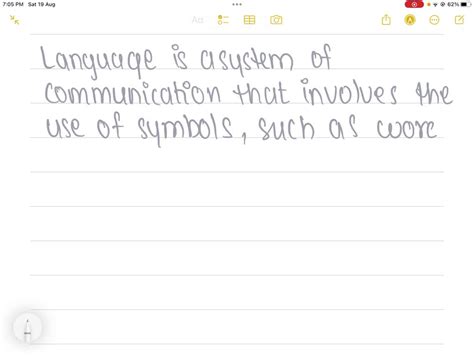 7:05 PM Sat 19 Aug
62%
Aa
Language is a system of
communication that involves the
use of symbols, such as worc